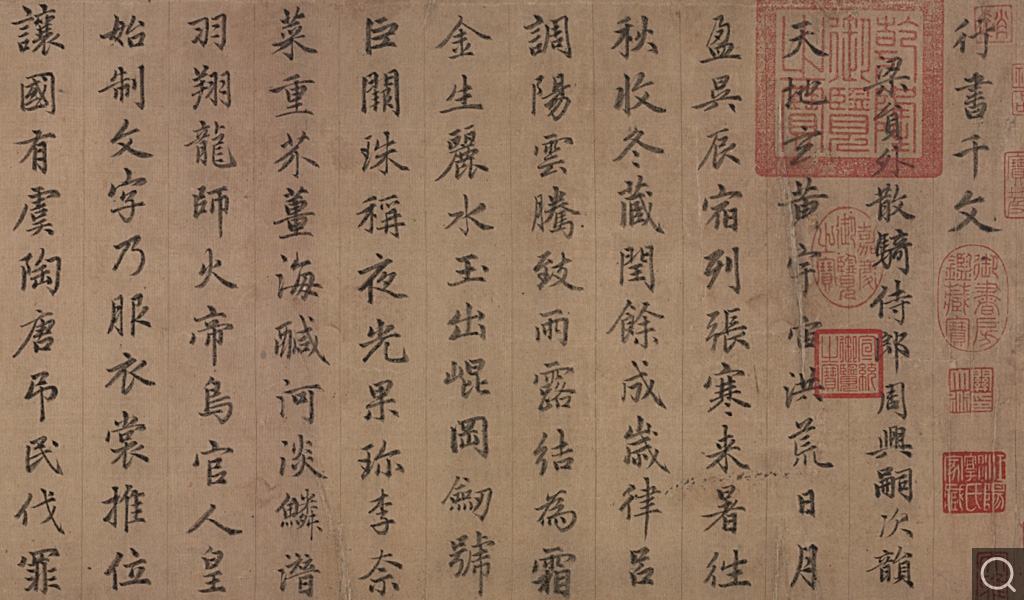 行書千文
梁貟外散騎侍郎周興嗣次韻
天地玄黄宇宙洪荒日月
盈昃辰宿列張寒来暑往
秋收冬藏閏餘成歲律呂
調陽雲騰致雨露結為霜
金生麗水玉出崐岡劒號
巨闕珠稱夜光果珎李柰
菜重芥薑海醎河淡鱗潛
羽翔龍師火帝鳥官人皇
始制文字乃服衣裳推位
讓國有虞陶唐吊民伐罪
御書房鑑藏寶
嘉慶御覽之寶
宣統御覽之寶